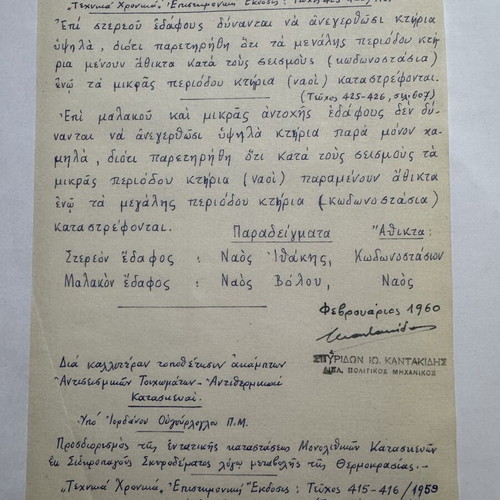 "Τεχνικά Χρονικά, Ἐπιστημονική Ἔκδοσις: Τεῦχη 425-426
Ἐπί στερεοῦ ἐδάφους δύνανται νά ἀνεγερθῶσι κτήρια
ὑψηλά, διότι παρετηρήθη ὅτι τά μεγάλης περιόδου κτή
ρια μένουν ἄθικτα κατά τούς σεισμούς (κωδωνοστάσια)
ἐνῷ τά μικρᾶς περιόδου κτήρια (ναοί) καταστρέφονται.
(Τεῦχος 425-426, σελ. 607)
Ἐπί μαλακοῦ καί μικρᾶς ἀντοχῆς ἐδάφους δέν δύ-
νανται νά ἀνεγερθῶσι ὑψηλά κτήρια παρά μόνον χα-
μηλά, διότι παρετηρήθη ὅτι κατά τούς σεισμούς τά
μικρᾶς περιόδου κτήρια (ναοί) παραμένουν ἄθικτα
ἐνῷ τά μεγάλης περιόδου κτήρια (κωδωνοστάσια)
καταστρέφονται.
Παραδείγματα Ἄθικτα:
Στερεόν ἔδαφος: Ναός Ἰθάκης, Κωδωνοστάσιον
Μαλακόν ἔδαφος: Ναός Βόλου, Ναός
Φεβρουάριος 1960
ΣΠΥΡΙΔΩΝ ΙΩ. ΚΑΝΤΑΚΙΔΗΣ
ΔΙΠΛ. ΠΟΛΙΤΙΚΟΣ ΜΗΧΑΝΙΚΟΣ
Διά καλλιτέραν τοποθέτησιν ἀκάμπτων
Ἀντισεισμικῶν Τοιχωμάτων - Ἀντιθερμικαί
Κατασκευαί.
Ὑπό Ἰορδάνου Οὐγούρλογλου Π.Μ.
Προσδιορισμός τῆς ἐντατικῆς καταστάσεως Μονολιθικῶν Κατασκευῶν
ἐκ Σιδηροπαγοῦς Σκυροδέματος λόγω μεταβολῆς τῆς Θερμοκρασίας.-
"Τεχνικά Χρονικά, Ἐπιστημονική Ἔκδοσις: Τεῦχος 415-416/1959